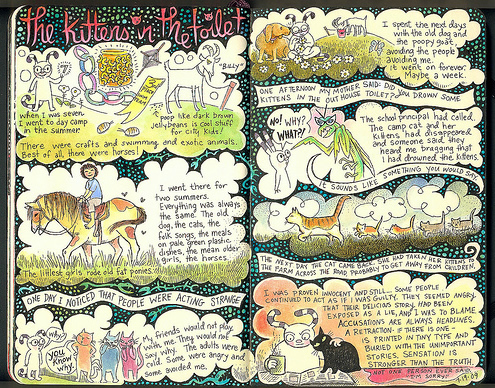 The Kittens in the Toilet
"BILLY"
when I was seven
I went to day camp
in the summer.
poop like dark brown
jellybeans is cool stuff
for city kids!
There were crafts and swimming and exotic animals.
Best of all, there were horses!
I went there for
two summers.
Everything was always
the same. The old
dog, the cats, the
folk songs, the meals
on pale green plastic
dishes, the mean older
girls, the horses.
The littlest girls rode old fat ponies.
ONE DAY I NOTICED THAT PEOPLE WERE ACTING STRANGE
why?
YOU
KNOW
WHY.
My friends would not play
with me. They would not
say why. The adults were
cold. Some were angry and
some avoided me.
I spent the next days
with the old dog and
the poopy goat,
avoiding the people
avoiding me.
it went on forever.
Maybe a week.
ONE AFTERNOON MY MOTHER SAID: DID YOU DROWN SOME
KITTENS IN THE OUT HOUSE TOILET??
NO! WHY?
WHAT?!
The school principal had called.
The camp cat and her
kittens had disappeared
and someone said they
heard me bragging that
I had drowned the kittens.
IT SOUNDS LIKE SOMETHING YOU WOULD SAY
THE NEXT DAY THE CAT CAME BACK. SHE HAD TAKEN HER KITTENS TO
THE FARM ACROSS THE ROAD PROBABLY TO GET AWAY FROM CHILDREN.
I WAS PROVEN INNOCENT AND STILL... SOME PEOPLE
CONTINUED TO ACT AS IF I WAS GUILTY. THEY SEEMED ANGRY
THAT THEIR DELICIOUS STORY HAD BEEN
EXPOSED AS A LIE, AND I WAS TO BLAME
ACCUSATIONS ARE ALWAYS HEADLINES.
A RETRACTION - IF THERE IS ONE -
IS PRINTED IN TINY TYPE AND
BURIED WITH THE UNIMPORTANT
STORIES. SENSATION IS
STRONGER THAN THE TRUTH.
NOT ONE PERSON EVER SAID
"I'M SORRY."